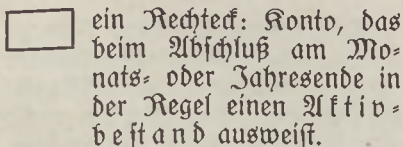 ein Rechteck: Konto, das
beim Abschluß am Mo-
nats- oder Jahresende in
der Regel einen Aktiv-
bestand ausweist.